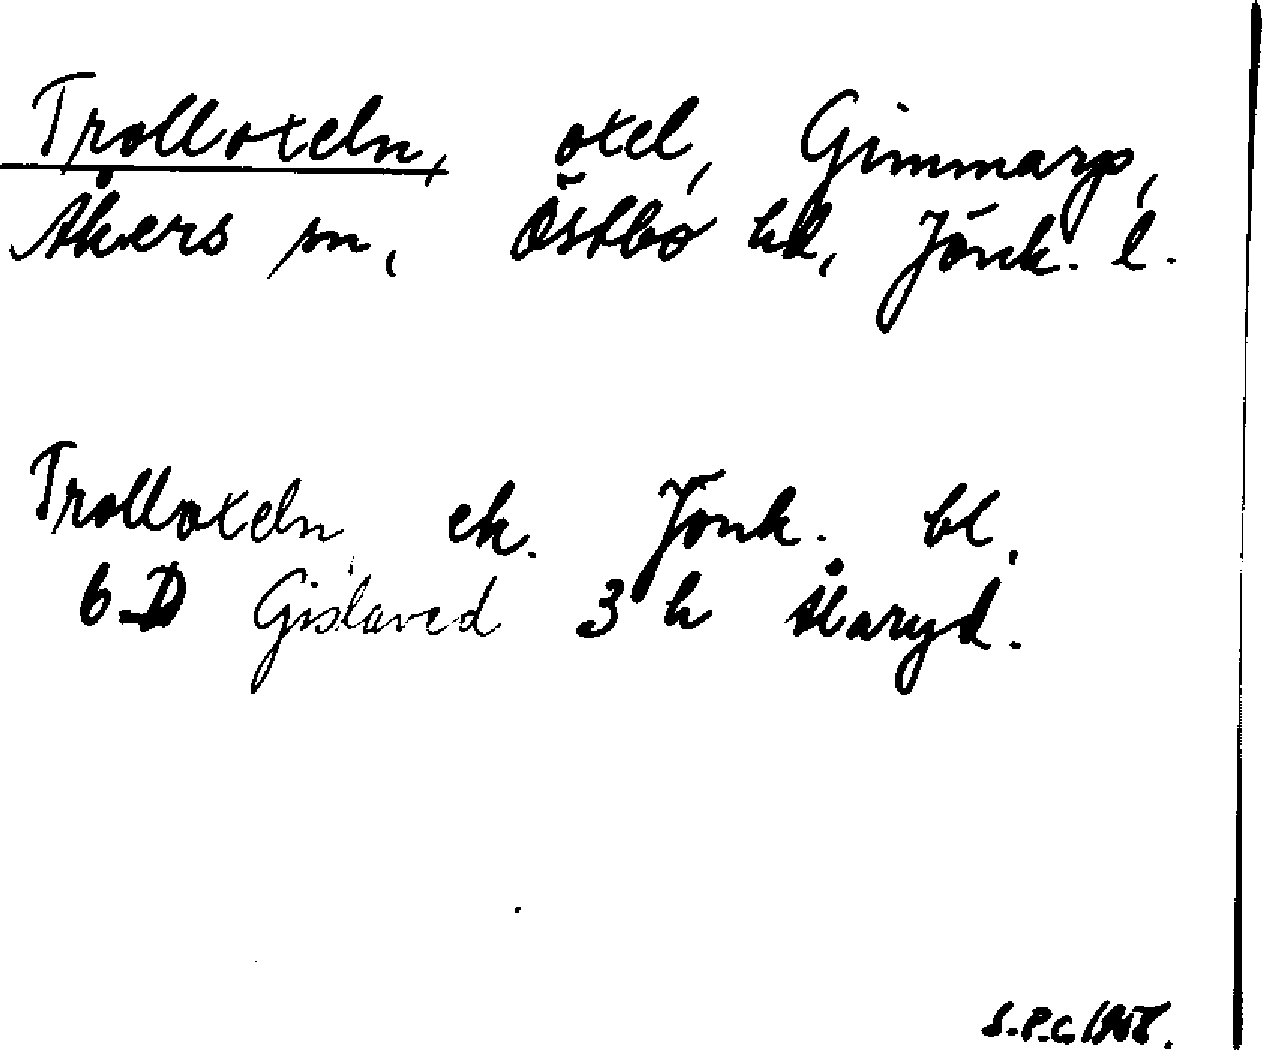 Trolloxeln, oxel, Gimmarp,
Åkers sn, Östbo hd, Jönk. l.
Trolloxeln ek. Jönk. bl.
6 D Gislaved 3 h Åkaryd.
S.P.C. 1958.